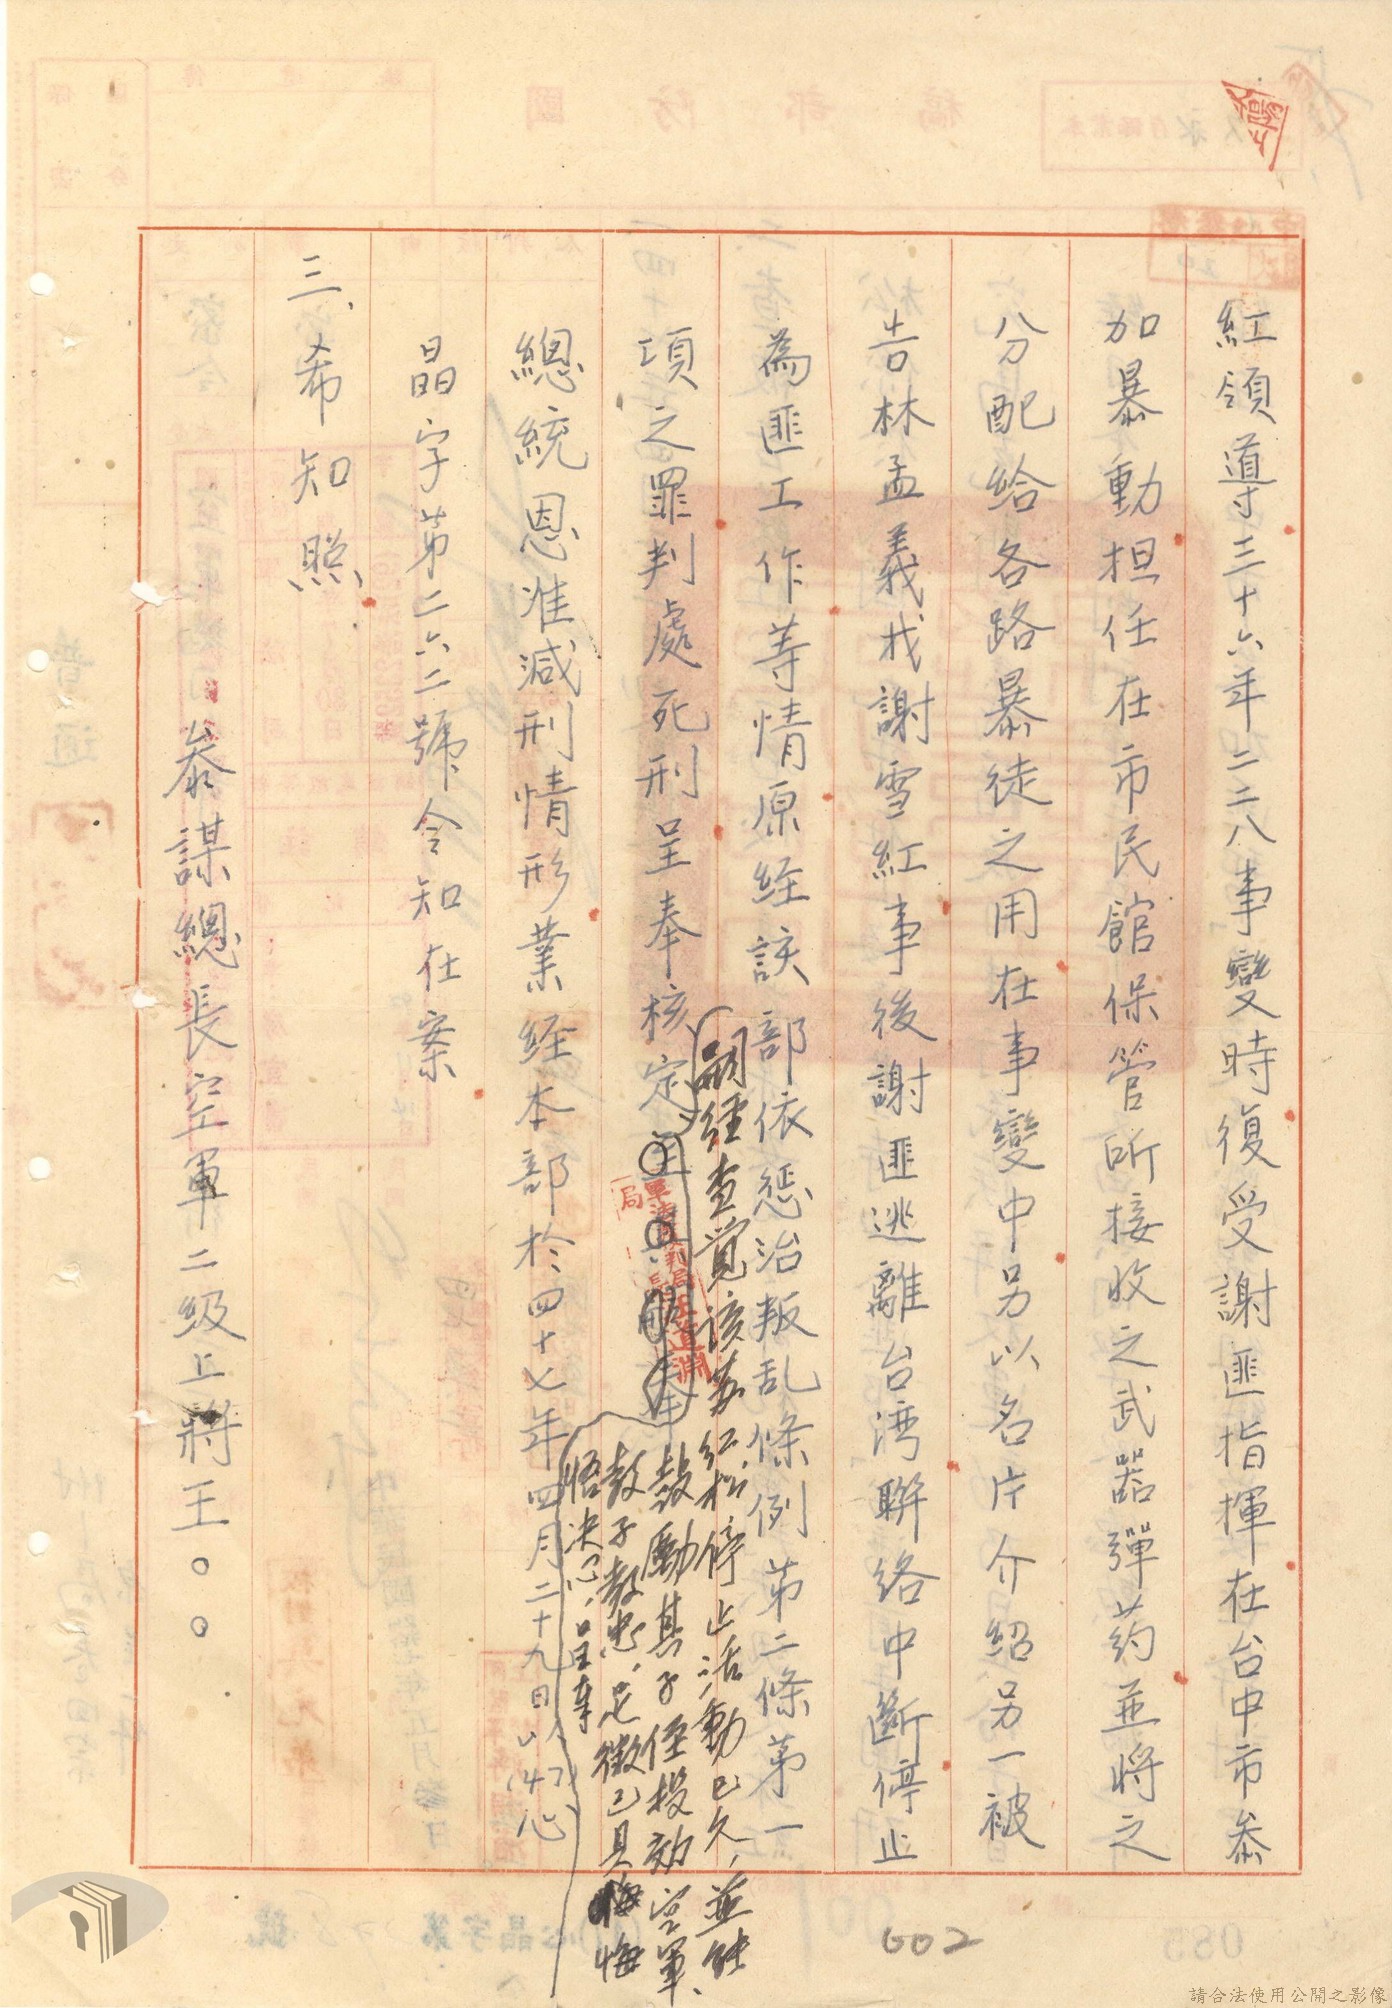 紅領導三十六年二二八事變時復受謝匪指揮在台中市參
加暴動担任在市民館保管所接收之武器彈药並將之
分配給各路暴徒之用在事變中另以名片介紹另一被
告林孟義找謝雪紅事後謝匪逃離台湾聨络中斷停止
為匪工作等情原经該部依惩治叛乱條例第二條第一
項之罪判處死刑呈奉核定
嗣經查覚该苏红松停止活動已久，並能
鼓勵其子侄投効空軍、
教子教忠，足徵已具悔
悟决心，呈奉
總統恩准減刑情形業经本部於四十七年四月二十九日(47)心
晶字第二六二號令知在案
三、希知照
參謀總長空軍二级上將王○○
002
085
請合法使用公開之影像